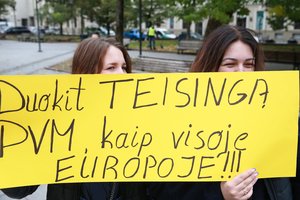 Duokit TEISINGĄ
PVM, kaip visoje
EUROPOJE!!!